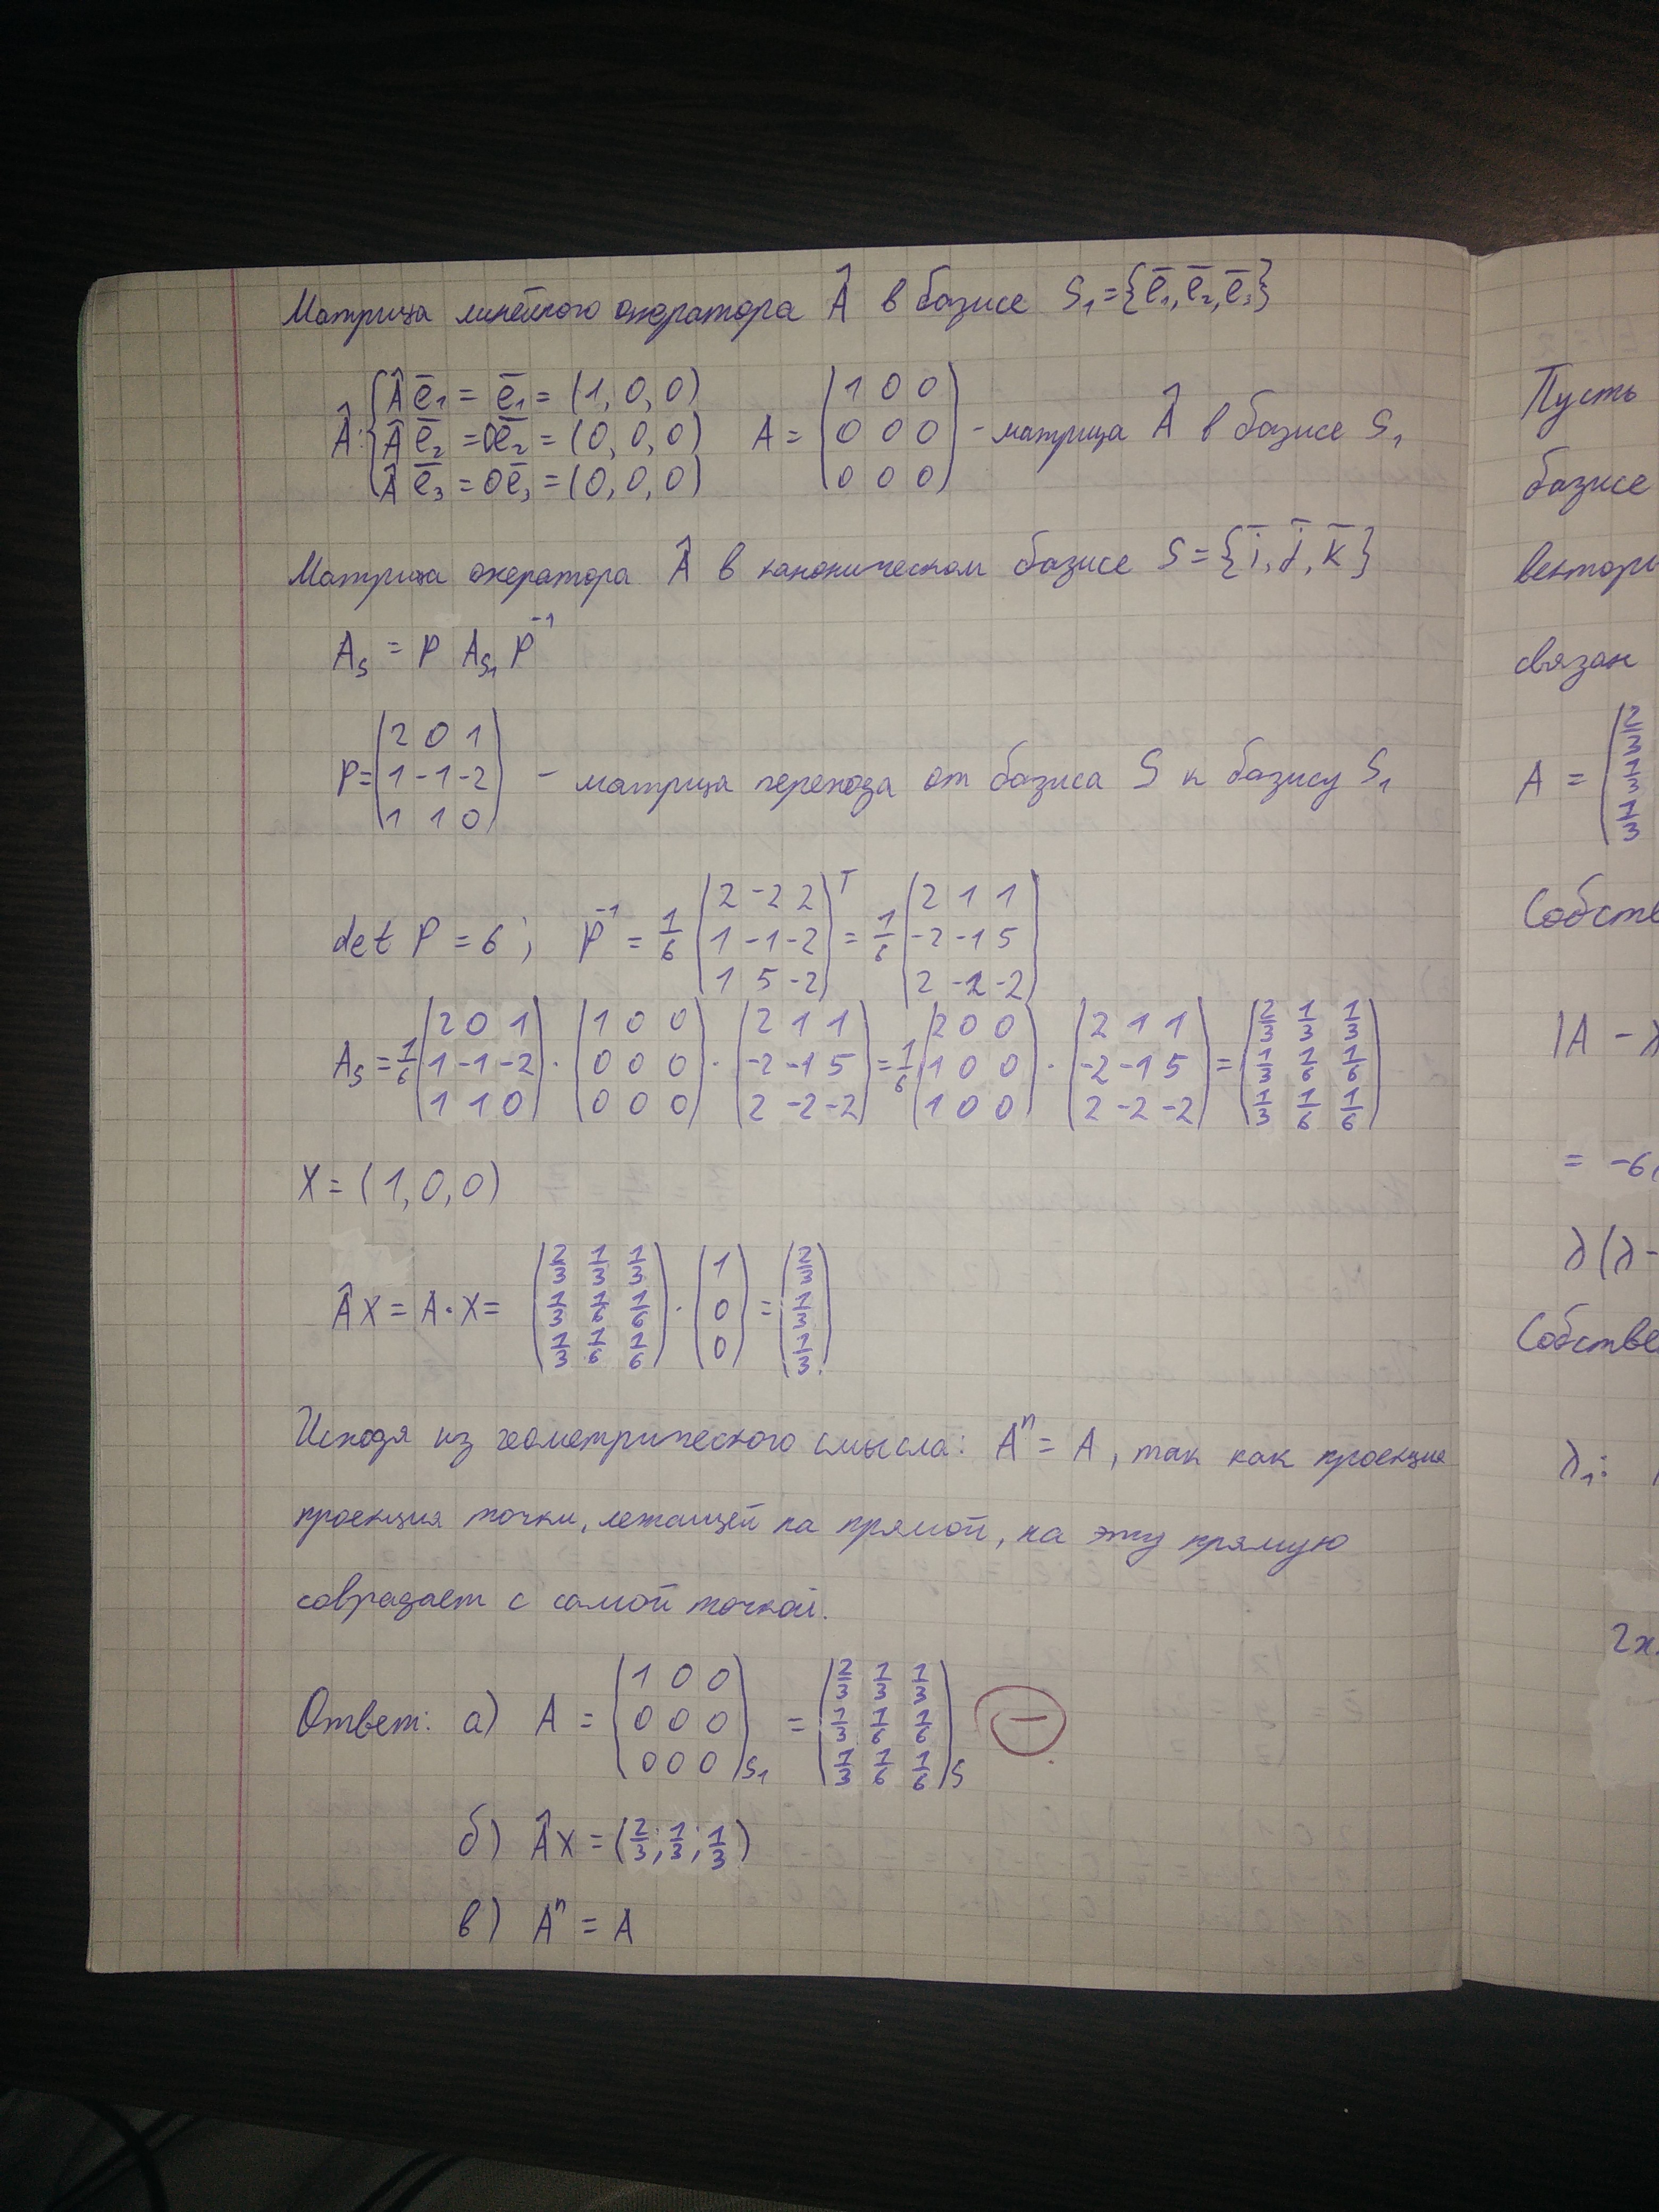 Матрица линейного оператора Â в базисе S₁={e̅₁,e̅₂,e̅₃}
Â: { Âe̅₁ = e̅₁ = (1, 0, 0)
Âe̅₂ = 0e̅₂ = (0, 0, 0)
Âe̅₃ = 0e̅₃ = (0, 0, 0)
A = (1 0 0
0 0 0
0 0 0) - матрица Â в базисе S₁
Матрица оператора Â в каноническом базисе S={i̅, j̅, k̅}
A_S = P A_S₁ P⁻¹
P = (2 0 1
1 -1 -2
1 1 0) - матрица перехода от базиса S к базису S₁
det P = 6; P⁻¹ = 1/6 (2 -2 2
1 -1 -2
1 5 -2)ᵀ = 1/6 (2 1 1
-2 -1 5
2 -2 -2)
A_S = 1/6 (2 0 1
1 -1 -2
1 1 0) · (1 0 0
0 0 0
0 0 0) · (2 1 1
-2 -1 5
2 -2 -2) = 1/6 (2 0 0
1 0 0
1 0 0) · (2 1 1
-2 -1 5
2 -2 -2) = (2/3 1/3 1/3
1/3 1/6 1/6
1/3 1/6 1/6)
X = (1, 0, 0)
ÂX = A·X = (2/3 1/3 1/3
1/3 1/6 1/6
1/3 1/6 1/6) · (1
0
0) = (2/3
1/3
1/3)
Исходя из геометрического смысла: Aⁿ = A, так как проекция
проекция точки, лежащей на прямой, на эту прямую
совпадает с самой точкой.
Ответ: а) A = (1 0 0
0 0 0
0 0 0)S₁ = (2/3 1/3 1/3
1/3 1/6 1/6
1/3 1/6 1/6)S −
б) ÂX = (2/3; 1/3; 1/3)
в) Aⁿ = A
Пусть
базисе
связан
A = (2/3
1/3
1/3
|A -
= -6
λ(λ-
λ₁:
2x